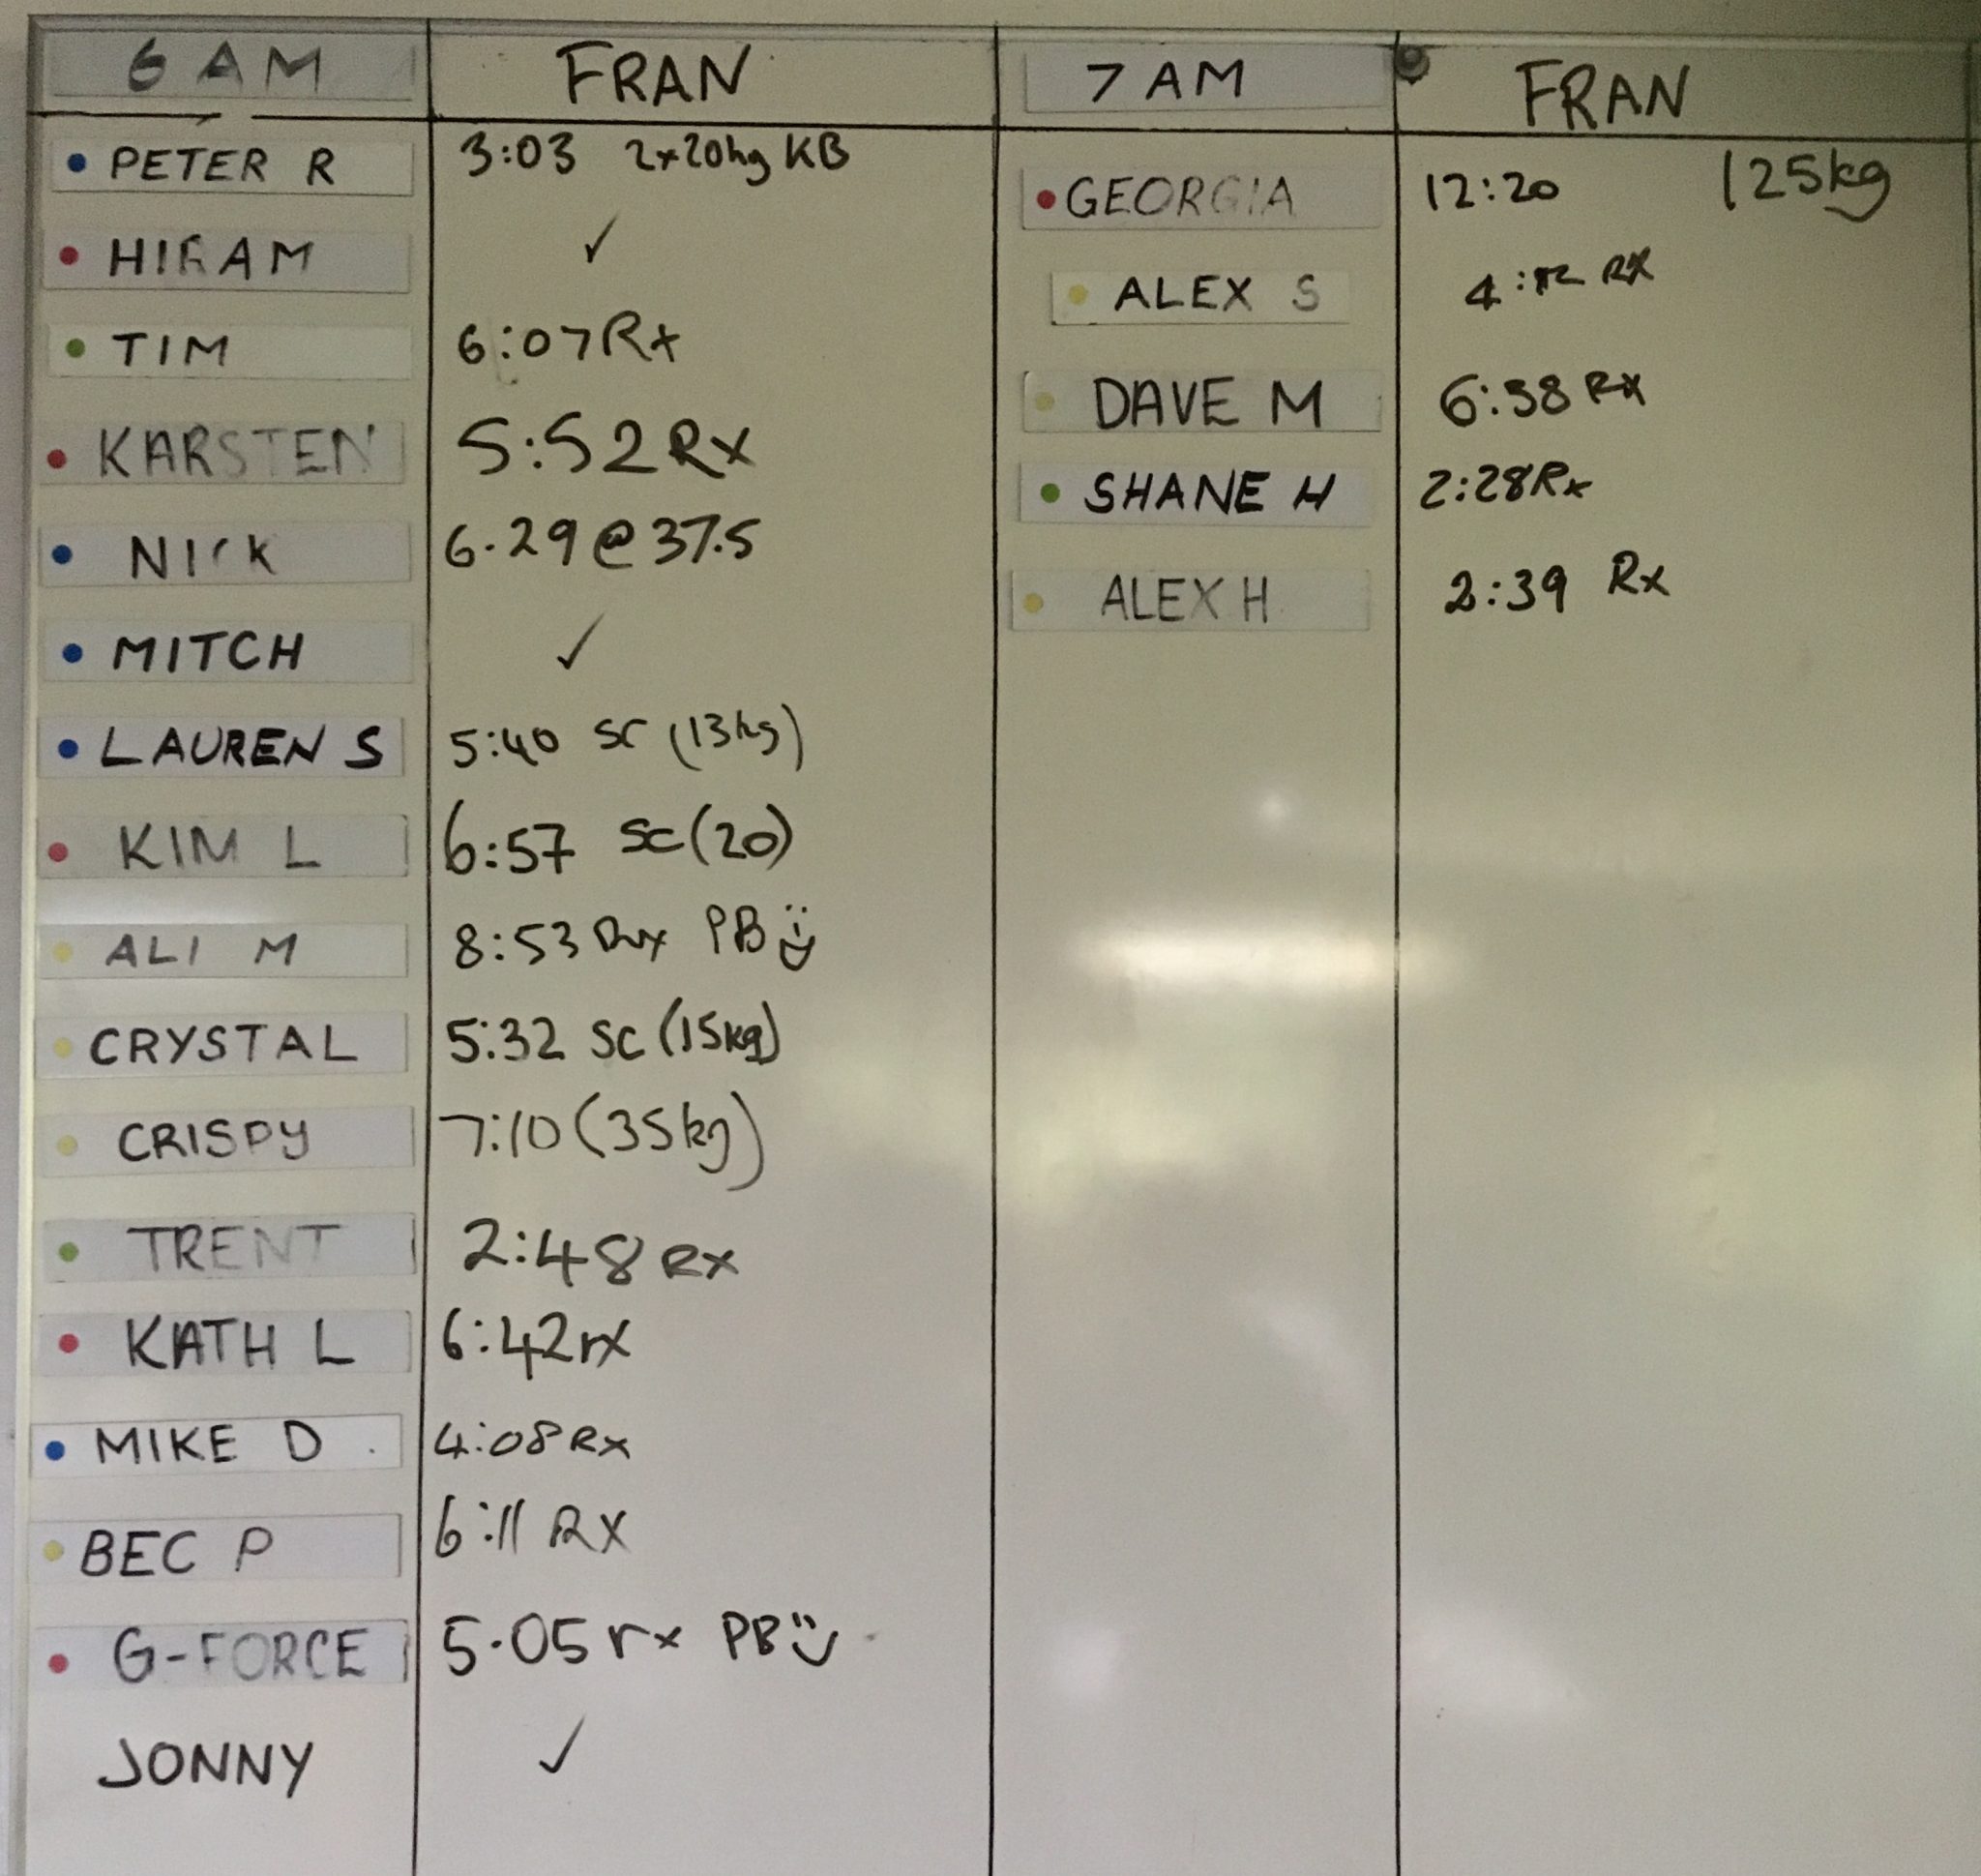 6 AM FRAN
PETER R 3:03 2x20kg KB
HIRAM ✓
TIM 6:07 Rx
KARSTEN 5:52 Rx
NICK 6.29 @ 37.5
MITCH ✓
LAUREN S 5:40 SC (13kg)
KIM L 6:57 SC (20)
ALI M 8:53 Rx PB
CRYSTAL 5:32 SC (15kg)
CRISPY 7:10 (35kg)
TRENT 2:48 RX
KATH L 6:42 rx
MIKE D 4:08 Rx
BEC P 6:11 RX
G-FORCE 5.05 rx PB
JONNY ✓
7 AM FRAN
GEORGIA 12:20 125kg
ALEX S RX
DAVE M 6:38 Rx
SHANE H 2:28 Rx
ALEX H 2:39 Rx